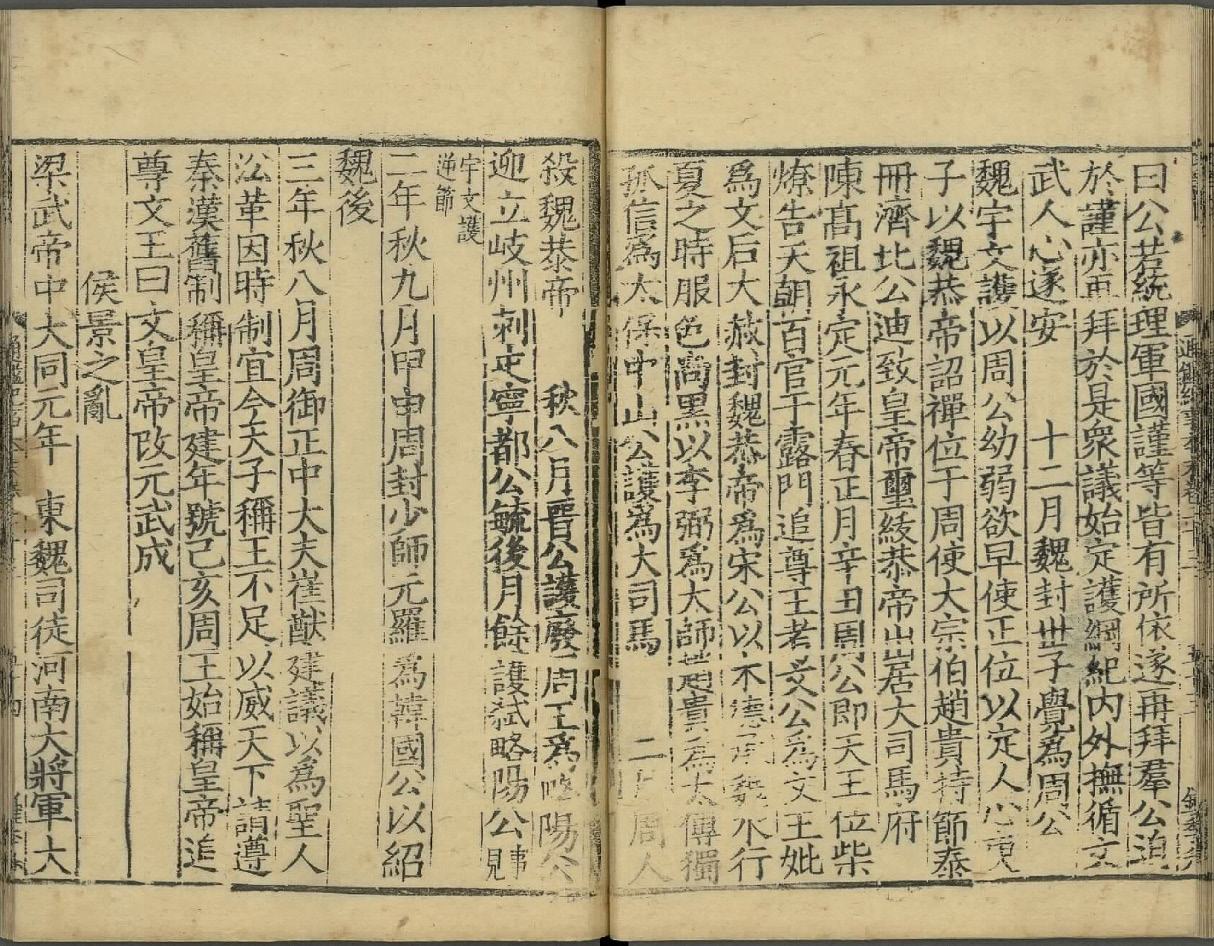 曰公若統理軍國謹等皆有所依遂再拜羣公迫
於謹亦再拜於是衆議始定護綱紀内外撫循文
武人心遂安　十二月魏封世子覺為周公
魏宇文護以周公幼弱欲早使正位以定人心庚
子以魏恭帝詔禪位于周使大宗伯趙貴持節奉
冊濟北公迪致皇帝璽綬恭帝出居大司馬府
陳髙祖永定元年春正月辛丑周公即天王位柴
燎告天朝百官于露門追尊王考文公爲文王妣
爲文后大赦封魏恭帝爲宋公以木德承魏水行
夏之時服色尚黒以李弼爲太師趙貴爲太傅獨
孤信爲太保中山公護爲大司馬　二月周人
殺魏恭帝　秋八月晉公護廢周王爲略陽公
迎立岐州刺史寧都公毓後月餘護弑略陽公事見
宇文護逆節
二年秋九月甲申周封少師元羅爲韓國公以紹
魏後
三年秋八月周御正中大夫崔猷建議以為聖人
沿革因時制宜今天子稱王不足以威天下請遵
秦漢舊制稱皇帝建年號己亥周王始稱皇帝追
尊文王曰文皇帝改元武成
侯景之亂
梁武帝中大同元年　東魏司徒河南大將軍大